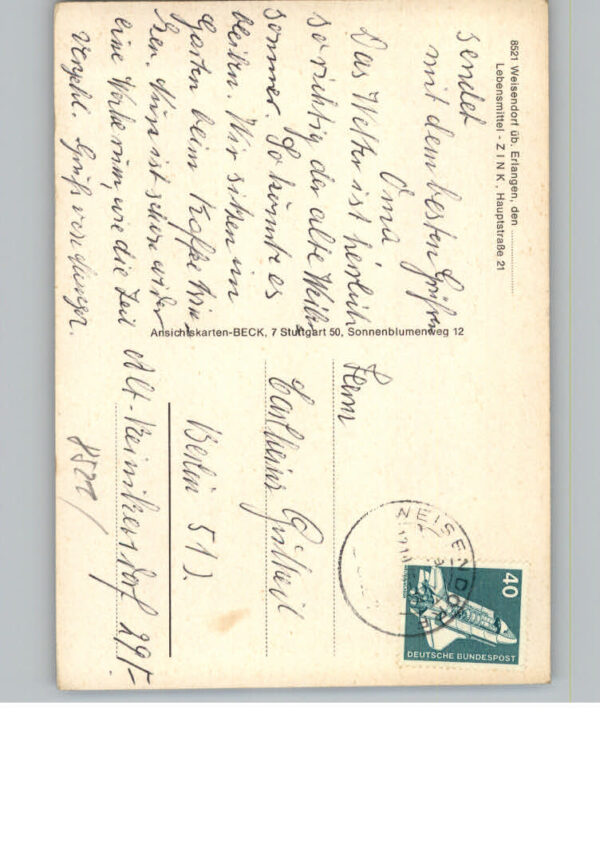 8521 Weisendorf üb. Erlangen, den
Lebensmittel - ZINK, Hauptstraße 21
sendet
mit dem besten Grüßen
Oma
Das Wetter ist herrlich
so richtig der alte Weiber
sommer. So könnte es
bleiben. Wir sitzen im
Garten beim Kaffe
Nun ist schon wieder
eine Woche rum, wie die Zeit
vergeht. Gruß
Ansichtskarten-BECK, 7 Stuttgart 50, Sonnenblumenweg 12
Herrn
Berlin 51
Alt-Reinickendorf 29
WEISENDORF
40
DEUTSCHE BUNDESPOST